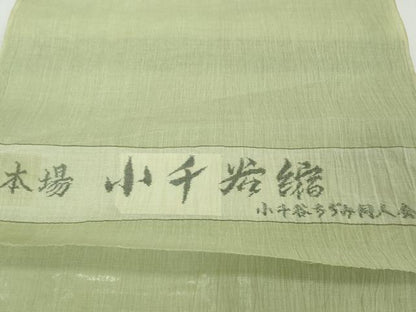 本場 小千谷縮
小千谷ちぢみ同人会